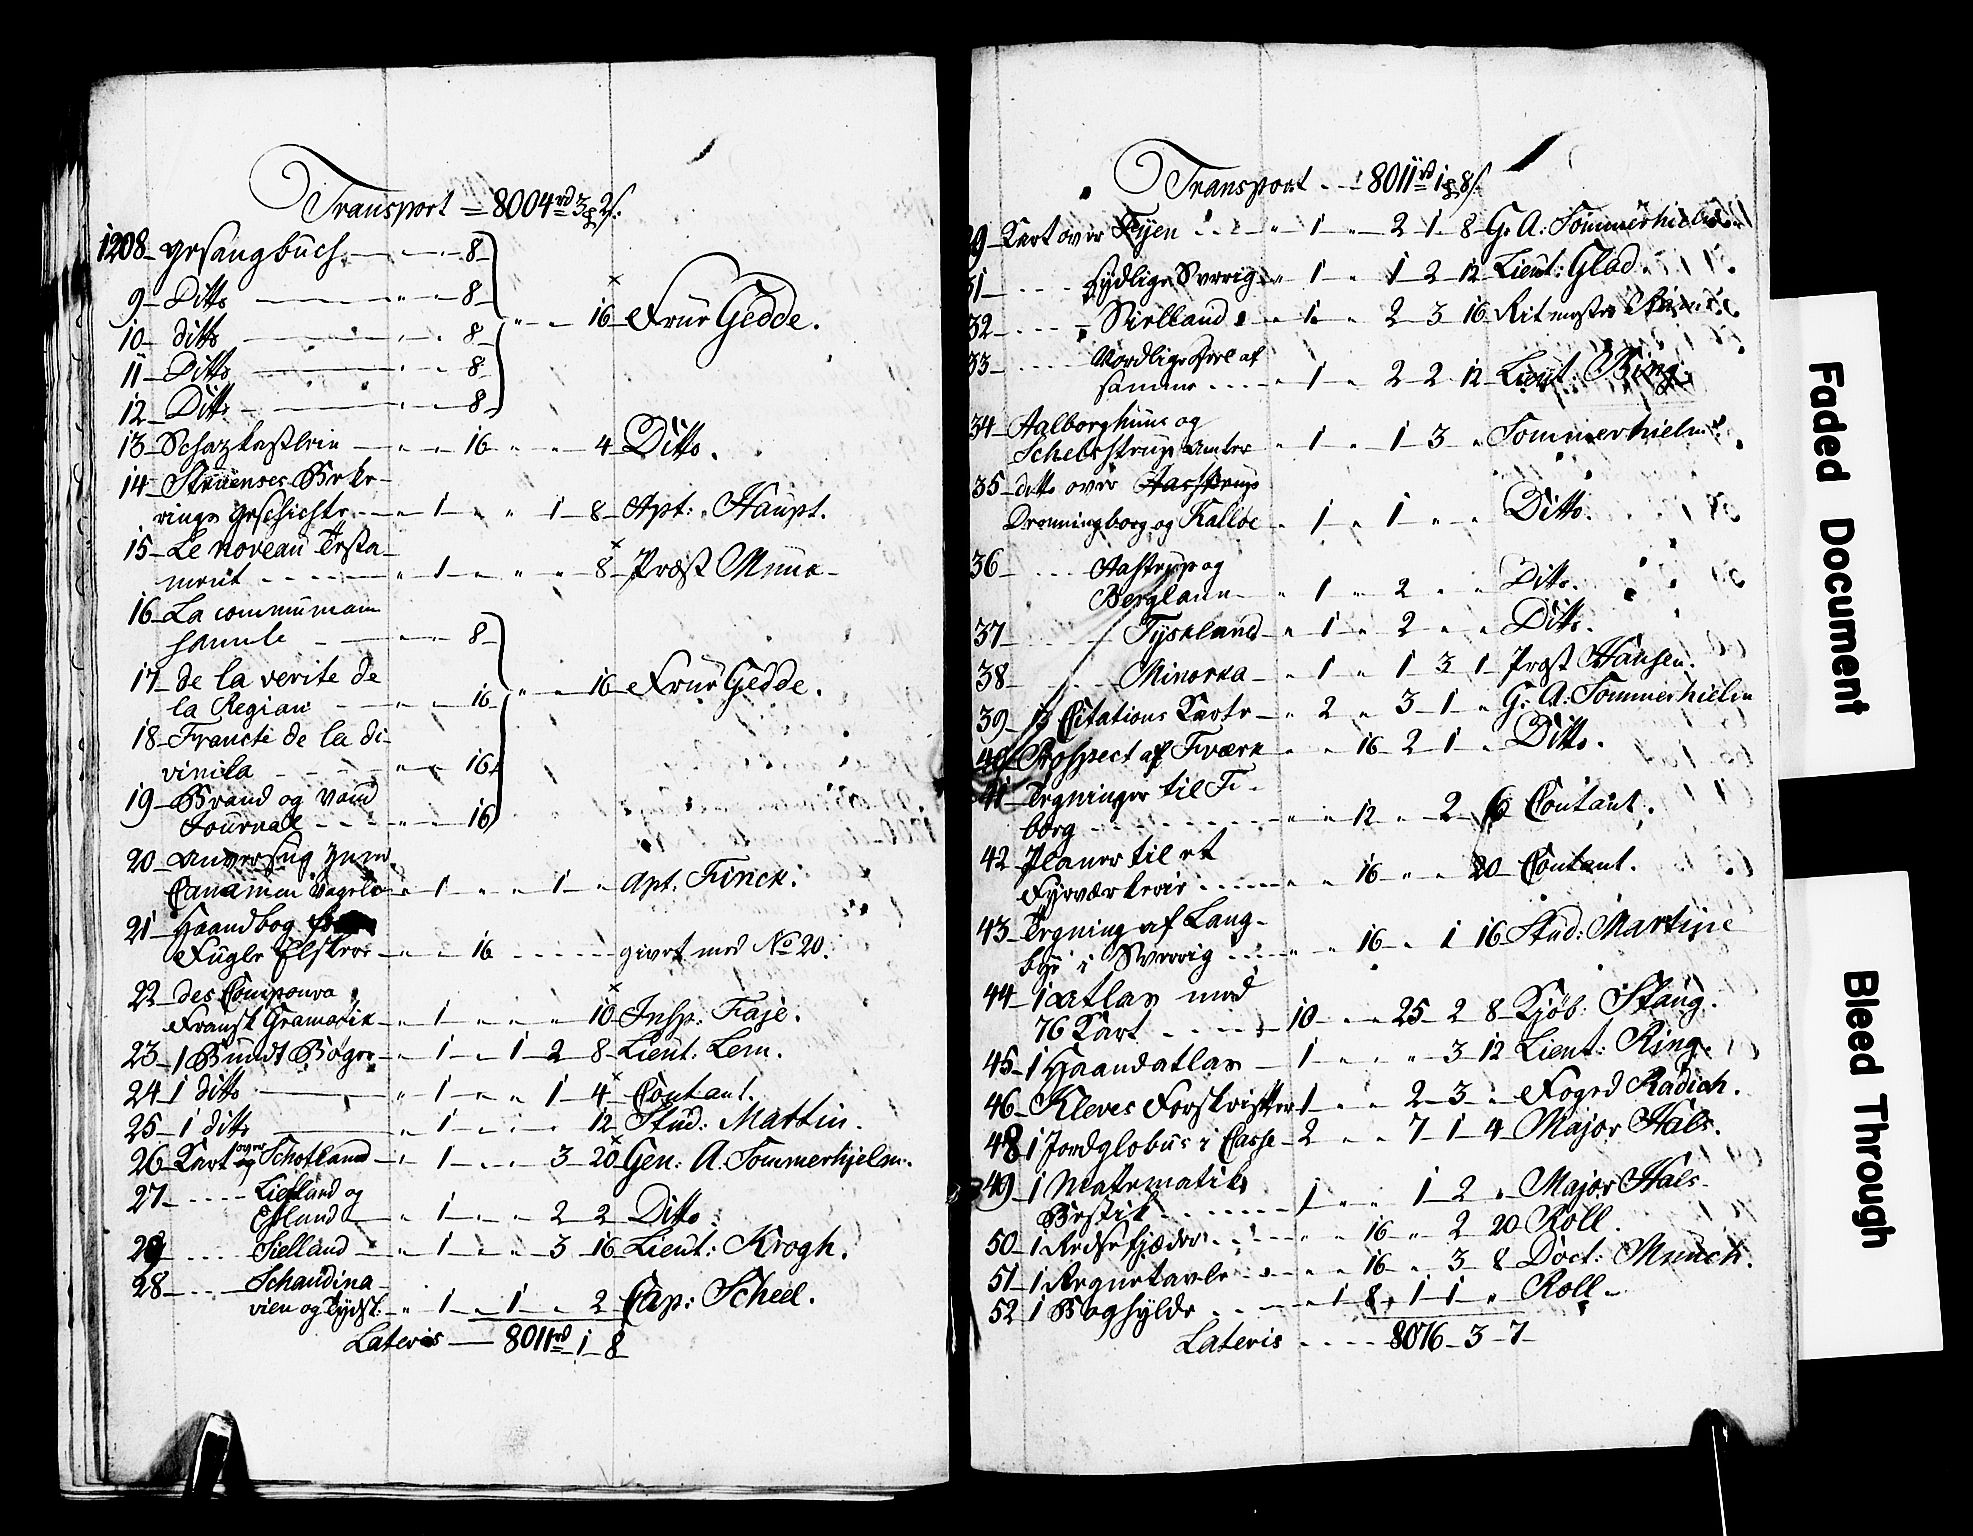 Transport = 8004 rd 3 ₰ 2 s:
1208 _ gesangbuch. — " — 8 _
9 _ Ditto — " " — 8 _
10 _ ditto — " " 8 _
11 _ Ditto — " " — 8 _
12 _ Ditto — " " — 8 _
" — 16 _ Frue Gedde.
13 _ Schazkastlein — " " 16 " " 4 _ Ditto.
14 _ Struenses Beke-
rings geschichte — " 1 " " 1 _ 8 _ Apt: Haupt.
15 _ Le noveau Testa-
ment — " 1 " " " 8 _ Præst Munc _
16 _ La commumain
sainte — " " 8 _
17 _ de la verite de
la Regian — " " 16
" — 16 _ Frue Gedde.
18 _ Francti de la di-
vinita — " " 16
19 _ Brand og Vand
Journal — " " 16
20 _ anversung zum
Canamen Vogele " 1 " " 1 " Apt. Finck.
21 _ Haandbog
Fugle Elskere — " " 16 givet med No 20.
22 _ des Componra
Fransk Gramatik — " 1 " " " 10 Insp: Faje.
23 _ 1 Bundt Bøger — " 1 " 1 _ 2 _ 8 _ Lieut: Lem.
24 _ 1 ditto — " 1 " " 1 _ 4 _ Contant.
25 _ 1 ditto — " 1 " " " 12 _ Stud: Martin.
26 _ Kart over Schotland — " 1 " " 3 _ 20 Gen: A. Sommerhjelm.
27 _ Liefland og
Estland — " 1 " " 2 _ 2 Ditto.
29 Sielland — " 1 " " 3 _ 16 _ Lieut: Krogh.
28 Schandina-
vien og Tydsl: " 1 " 1 " 2 Cap: Scheel.
Lateris — 8011 rd 1 _ 8
Transport - - 8011 rd 1 ₰ 8 s
29 _ Kart over Fyen " 1 " 2 _ 1 _ 8 _ G. A: Sommerhielm
31 sydlige Sverrig " 1 " 1 _ 2 _ 12 _ Lieut: Glad
32 Sielland " 1 " 2 _ 3 _ 16 Ritmester
33 Nordlige Deel af
samme " 1 " 2 _ 2 _ 12 _ Lieut Bing.
34 _ Aalborghuus og
Schelstrup Amter " 1 " 1 _ 3 " Sommerhielm
35 _ ditto over Aastrup
Dronningborg og Kalloe " 1 " 1 " " Ditto.
36 Aastrup og
Berglaun " 1 " 2 " " Ditto.
37 Tyskland " 1 " 2 " " Ditto.
38 Minorka " 1 " 1 _ 3 _ 1 _ Præst Hansen.
39 _ 13 Citations Karte " 2 " 3 _ 1 " G. A: Sommerhielm
40 Prospect af Tværk " " 16 _ 2 _ 1 " Ditto.
41 _ Tegninger til Fr-
borg " " 12 " 2 6 Contant.
42 _ Planer til et
Fyrværkerie " " 16 " " 20 _ Contant.
43 _ Tegning af Lang-
bye i Sverrig " " 16 " 1 16 _ Stud: Martine
44 _ 1 atlas med
76 Kart 10 " " 25 _ 2 _ 8 _ Kjøb: Stang.
45 _ 1 Haandatlas _ 1 " " " 3 _ 12 _ Lieut: Ring.
46 _ Kleves Forskrifter 1 " " 2 _ 3 " Foged Radich.
48 1 Jordglobus i Casse _ 2 " " 7 _ 1 _ 4 _ Major Hals.
49 _ 1 Matematik
Bestik 1 " " 1 _ 2 " Major Hals.
50 _ 1 Redsefjæder " " 16 " 2 _ 20 Roll.
51 _ 1 Regnetavle " " 16 " 3 _ 8 _ Doct: Munch.
52 _ 1 Boghylde " 1 8 " 1 _ 1 " Roll _
Lateris - - - 8076 _ 3 _ 7 _
Faded Document
Bleed Through